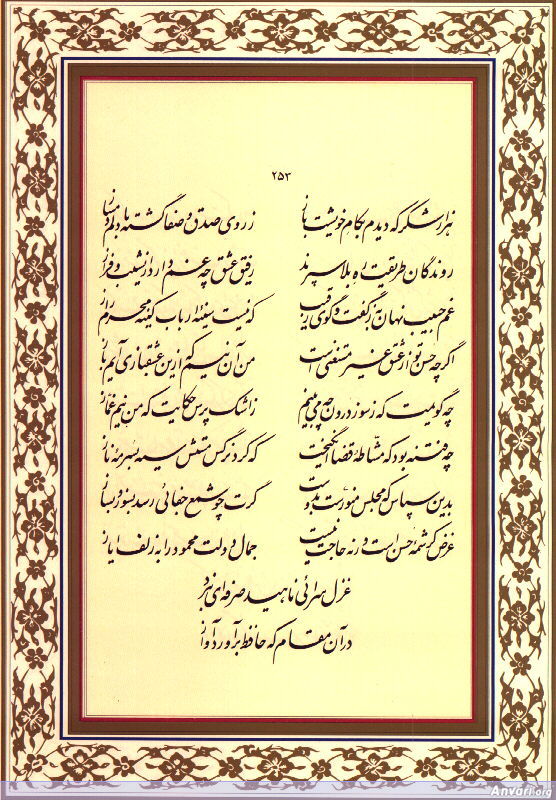 ۲۵۳
هزار شکر که دیدم بکام خویشت باز ز روی صدق و صفا گشته با دلم دمساز
روندگان طریقت ره بلا سپرند رفیق عشق چه غم دارد از نشیب و فراز
غم حبیب نهان به ز گفت و گوی رقیب که نیست سینهٔ ارباب کینه محرم راز
اگرچه حسن تو از عشق غیر مستغنی است من آن نیم که ازین عشقبازی آیم باز
چه گویمت که ز سوز درون چه می بینم ز اشک پرس حکایت که من نیم غمّاز
چه فتنه بود که مشّاطه قضا انگیخت که کرد نرگس مستش سیه بسرمه ناز
بدین سپاس که مجلس منورست بدوست گرت چو شمع جفائی رسد بسوز و بساز
غرض کرشمهٔ حسن است ورنه حاجت نیست جمال دولت محمود را بزلف ایاز
غزل سرائی ناهید صرفه ای نبرد
در آن مقام که حافظ برآورد آواز
Anvari.org